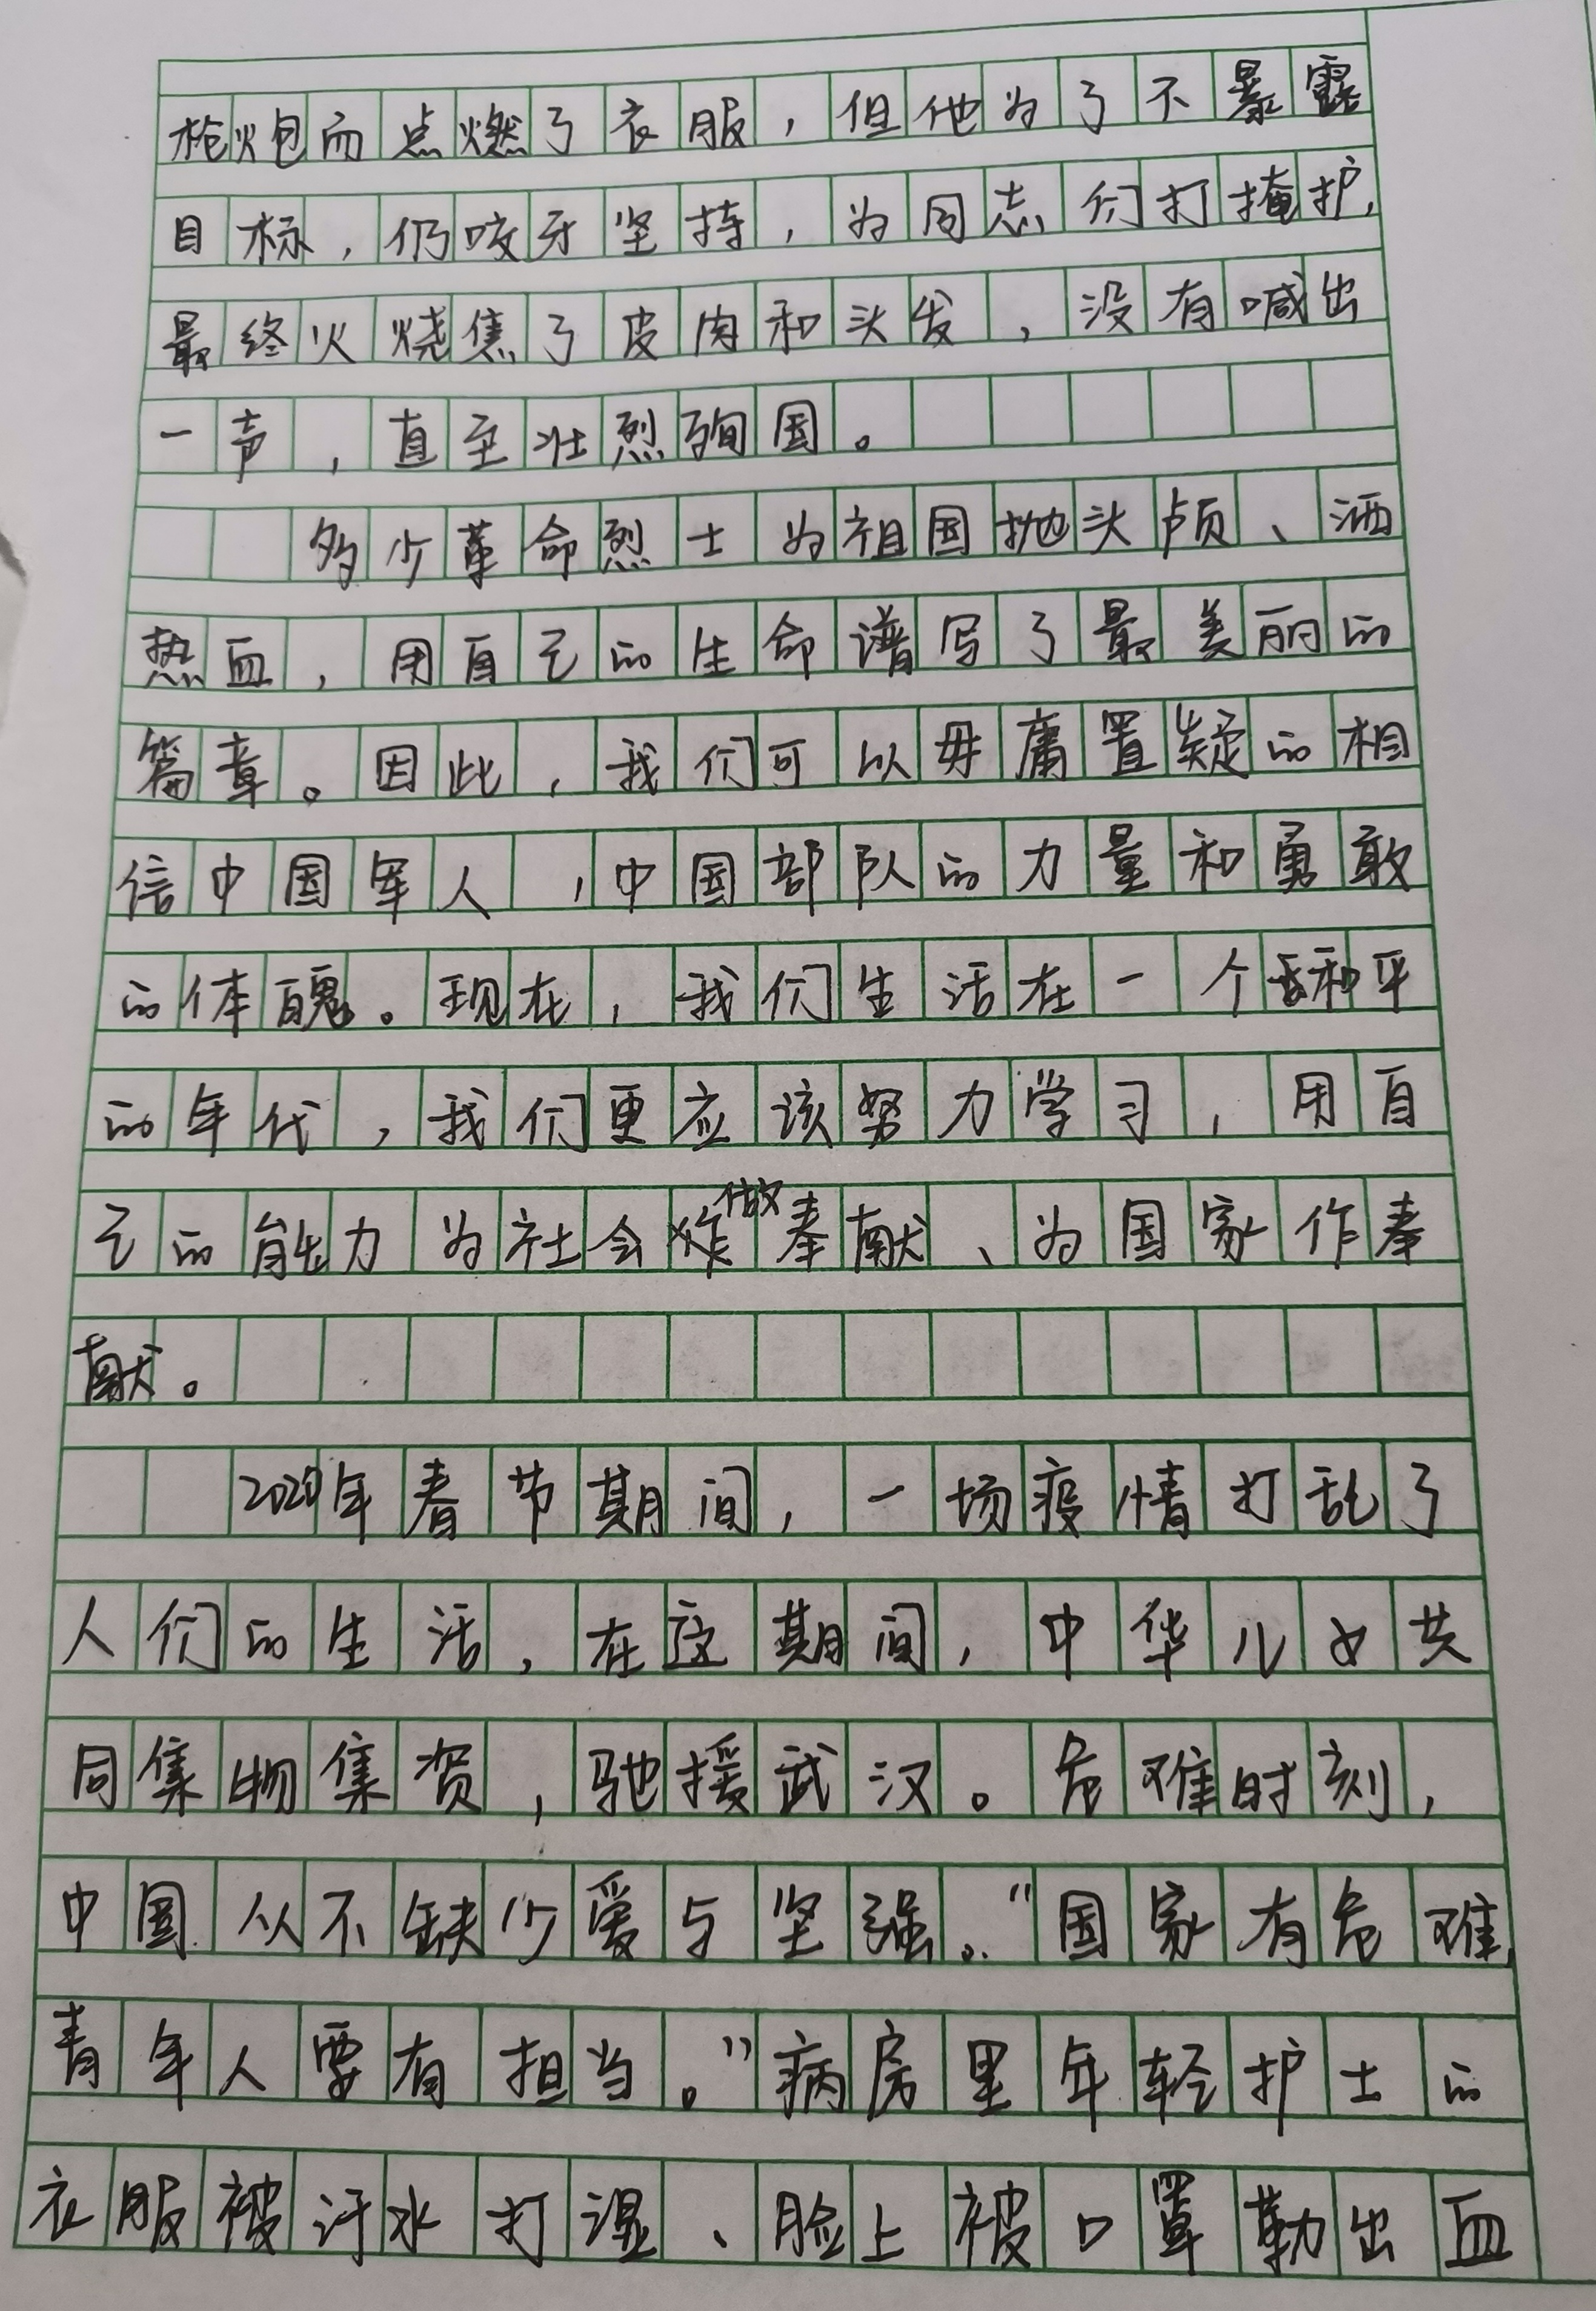 枪炮而点燃了衣服，但他为了不暴露
目标，仍咬牙坚持，为同志们打掩护，
最终火烧焦了皮肉和头发，没有喊出
一声，直至壮烈殉国。
多少革命烈士为祖国抛头颅、洒
热血，用自己的生命谱写了最美丽的
篇章。因此，我们可以毋庸置疑的相
信中国军人，中国部队的力量和勇敢
的体魄。现在，我们生活在一个和平
的年代，我们更应该努力学习，用自
己的能力为社会做奉献、为国家作奉
献。
2020年春节期间，一场疫情打乱了
人们的生活，在这期间，中华儿女共
同集物集资，驰援武汉。危难时刻，
中国从不缺少爱与坚强。“国家有危难，
青年人要有担当。”病房里年轻护士的
衣服被汗水打湿、脸上被口罩勒出血